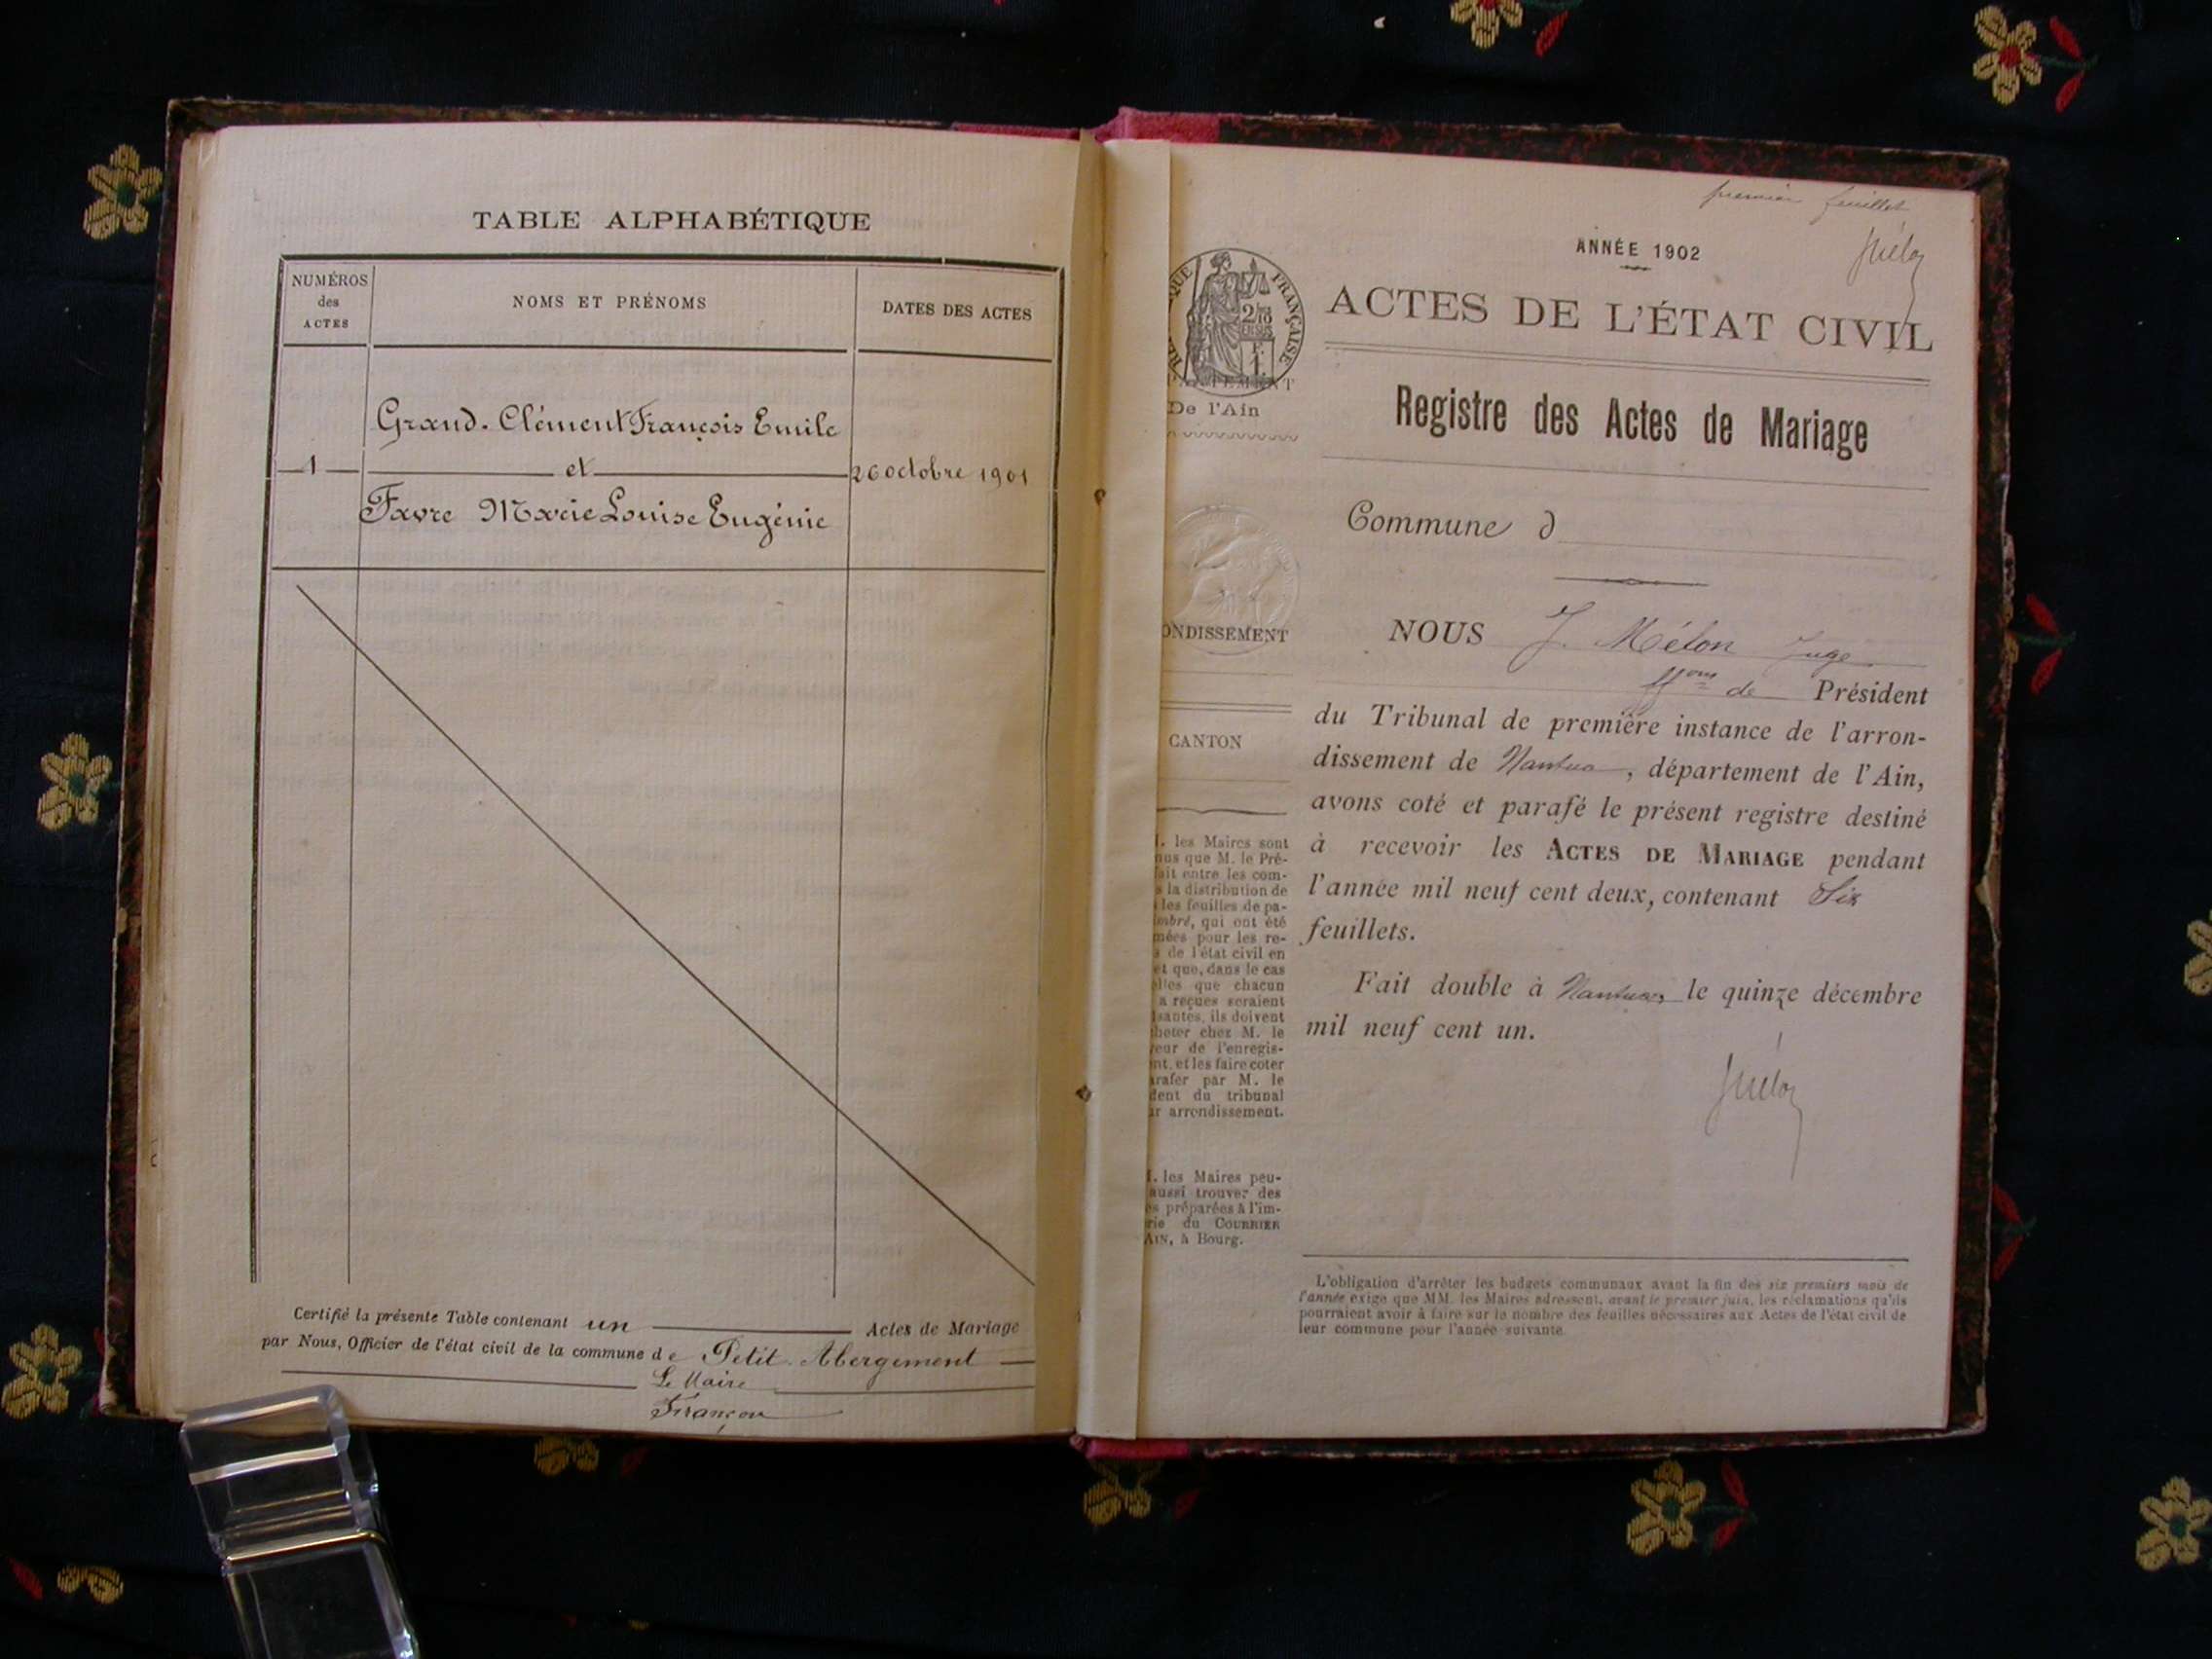 TABLE ALPHABÉTIQUE
NUMÉROS
des
ACTES
NOMS ET PRÉNOMS
DATES DES ACTES
Grand-Clément François Emile
1 et 26 octobre 1901
Favre Marie Louise Eugénie
Certifié la présente Table contenant un Actes de Mariage
par Nous, Officier de l'état civil de la commune de Petit-Abergement
Le Maire
premier feuillet
ANNÉE 1902
ACTES DE L'ÉTAT CIVIL
QUE FRANÇAISE
De l'Ain
Registre des Actes de Mariage
Commune d
ONDISSEMENT
NOUS J. Mélon Juge
ffons de Président
du Tribunal de première instance de l'arron-
dissement de Nantua, département de l'Ain,
avons coté et parafé le présent registre destiné
à recevoir les ACTES DE MARIAGE pendant
l'année mil neuf cent deux, contenant Six
feuillets.
Fait double à Nantua, le quinze décembre
mil neuf cent un.
CANTON
. les Maires sont
nus que M. le Pré-
fait entre les com-
s la distribution de
les feuilles de pa-
mbré, qui ont été
mées pour les re-
s de l'état civil en
et que, dans le cas
elles que chacun
a reçues seraient
isantes, ils doivent
heter chez M. le
veur de l'enregis-
nt, et les faire coter
arafer par M. le
dent du tribunal
ur arrondissement.
. les Maires peu-
aussi trouver des
es préparées à l'im-
rie du COURRIER
AIN, à Bourg.
L'obligation d'arrêter les budgets communaux avant la fin des six premiers mois de
l'année exige que MM. les Maires adressent, avant le premier juin, les réclamations qu'ils
pourraient avoir à faire sur le nombre des feuilles nécessaires aux Actes de l'état civil de
leur commune pour l'année suivante.